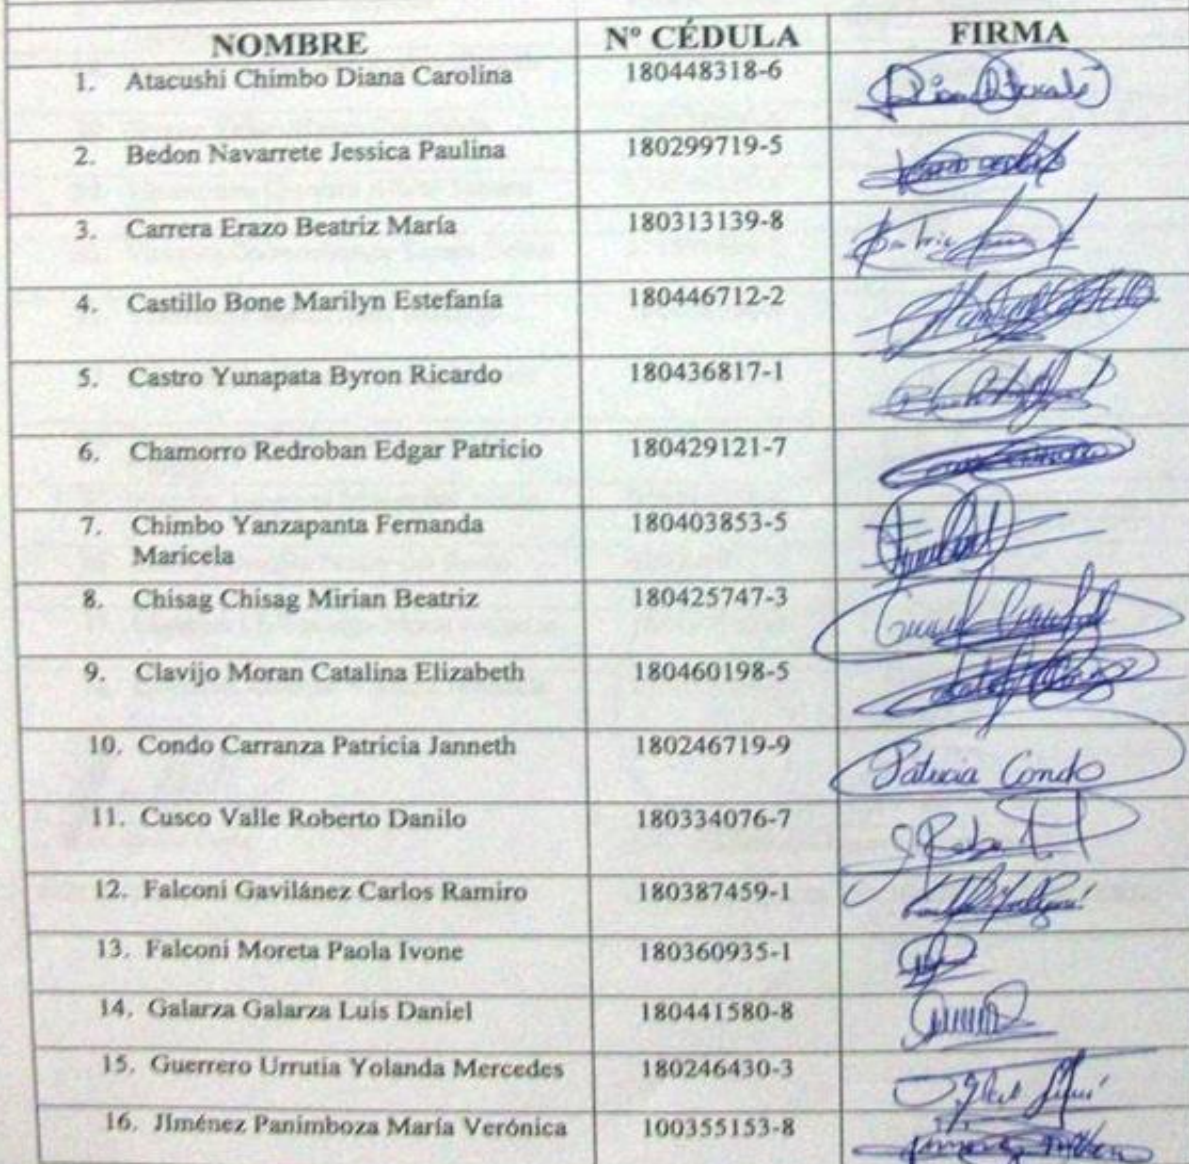 NOMBRE Nº CÉDULA FIRMA
1. Atacushi Chimbo Diana Carolina 180448318-6
2. Bedon Navarrete Jessica Paulina 180299719-5
3. Carrera Erazo Beatriz María 180313139-8
4. Castillo Bone Marilyn Estefanía 180446712-2
5. Castro Yunapata Byron Ricardo 180436817-1
6. Chamorro Redroban Edgar Patricio 180429121-7
7. Chimbo Yanzapanta Fernanda 180403853-5
Maricela
8. Chisag Chisag Mirian Beatriz 180425747-3
9. Clavijo Moran Catalina Elizabeth 180460198-5
10. Condo Carranza Patricia Janneth 180246719-9 Patricia Condo
11. Cusco Valle Roberto Danilo 180334076-7
12. Falconi Gavilánez Carlos Ramiro 180387459-1
13. Falconi Moreta Paola Ivone 180360935-1
14. Galarza Galarza Luis Daniel 180441580-8
15. Guerrero Urrutia Yolanda Mercedes 180246430-3
16. JIménez Panimboza María Verónica 100355153-8